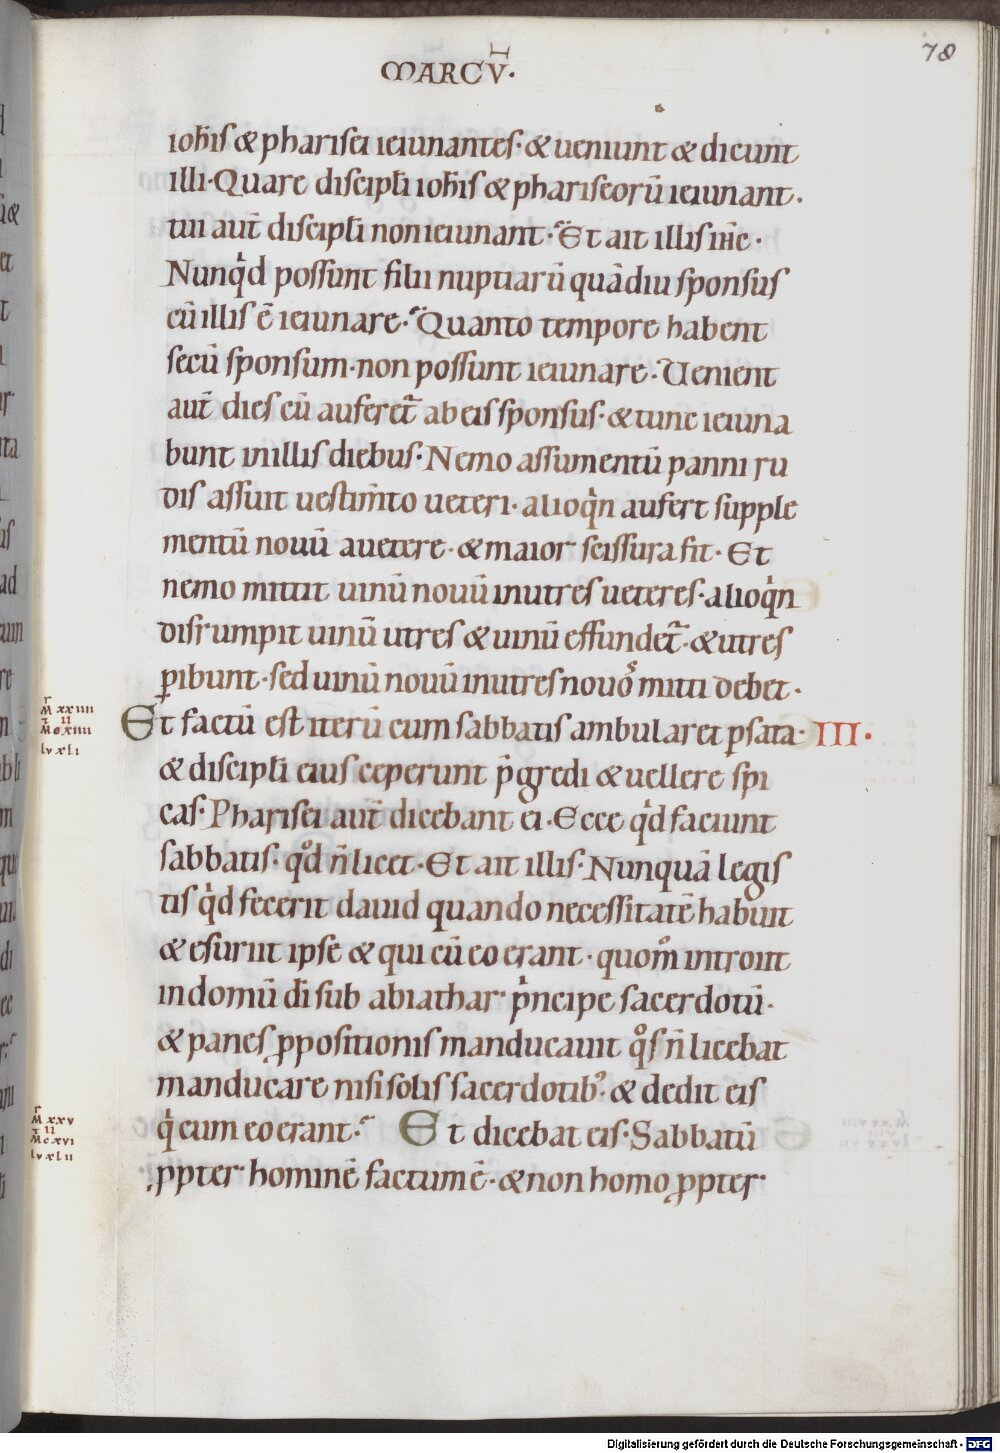 MARCV̅·
78
ioh̅is & pharisei ieiunantes· & ueniunt & dicunt
illi· Quare discipl̅i ioh̅is & phariseorū ieiunant·
tui aut̅ discipl̅i non ieiunant· Et ait illis ih̅c·
Nunq̍d possunt filii nuptiarū quādiu sponsus
cū illis ē ieiunare· Quanto tempore habent
secū sponsum· non possunt ieiunare· Uenient
aut̅ dies cū auferet̅ ab eis sponsus· & tunc ieiuna
bunt in illis diebus· Nemo assumentū panni ru
dis assuit uestim̅to ueteri· alioq̍n aufert supple
mentū nouū auetere· & maior scissura fit· Et
nemo mittit uinū nouū inutres ueteres· alioq̍n
disrumpit uinū utres & uinū effundet̅· & utres
ꝑibunt· sed uinū nouū inutres nouos mitti debet·
Et factū est iterū cum sabbatis ambularet ꝑ sata· III·
& discipl̅i eius ceperunt p̅gredi & uellere spi
cas· Pharisei aut̅ dicebant ei· Ecce q̍d faciunt
sabbatis· qͦd n̅ licet· Et ait illis· Nunquā legis
tis q̍d fecerit dauid quando necessitatē habuit
& esuriit ipse & qui cū eo erant· quom̊ introiit
in domū di̅ sub abiathar p̍ncipe sacerdotū·
& panes ꝓpositionis manducauit qͦs n̅ licebat
manducare nisi solis sacerdotib; & dedit eis
q̍ cum eo erant· Et dicebat eis· Sabbatū
ꝓpter hominē factum ē· & non homo ꝓpter
r
M xxiiii
t ii
M cxiiii
lv xli
r
M xxv
t ii
M cxvi
lv xlii
Digitalisierung gefördert durch die Deutsche Forschungsgemeinschaft - DFG